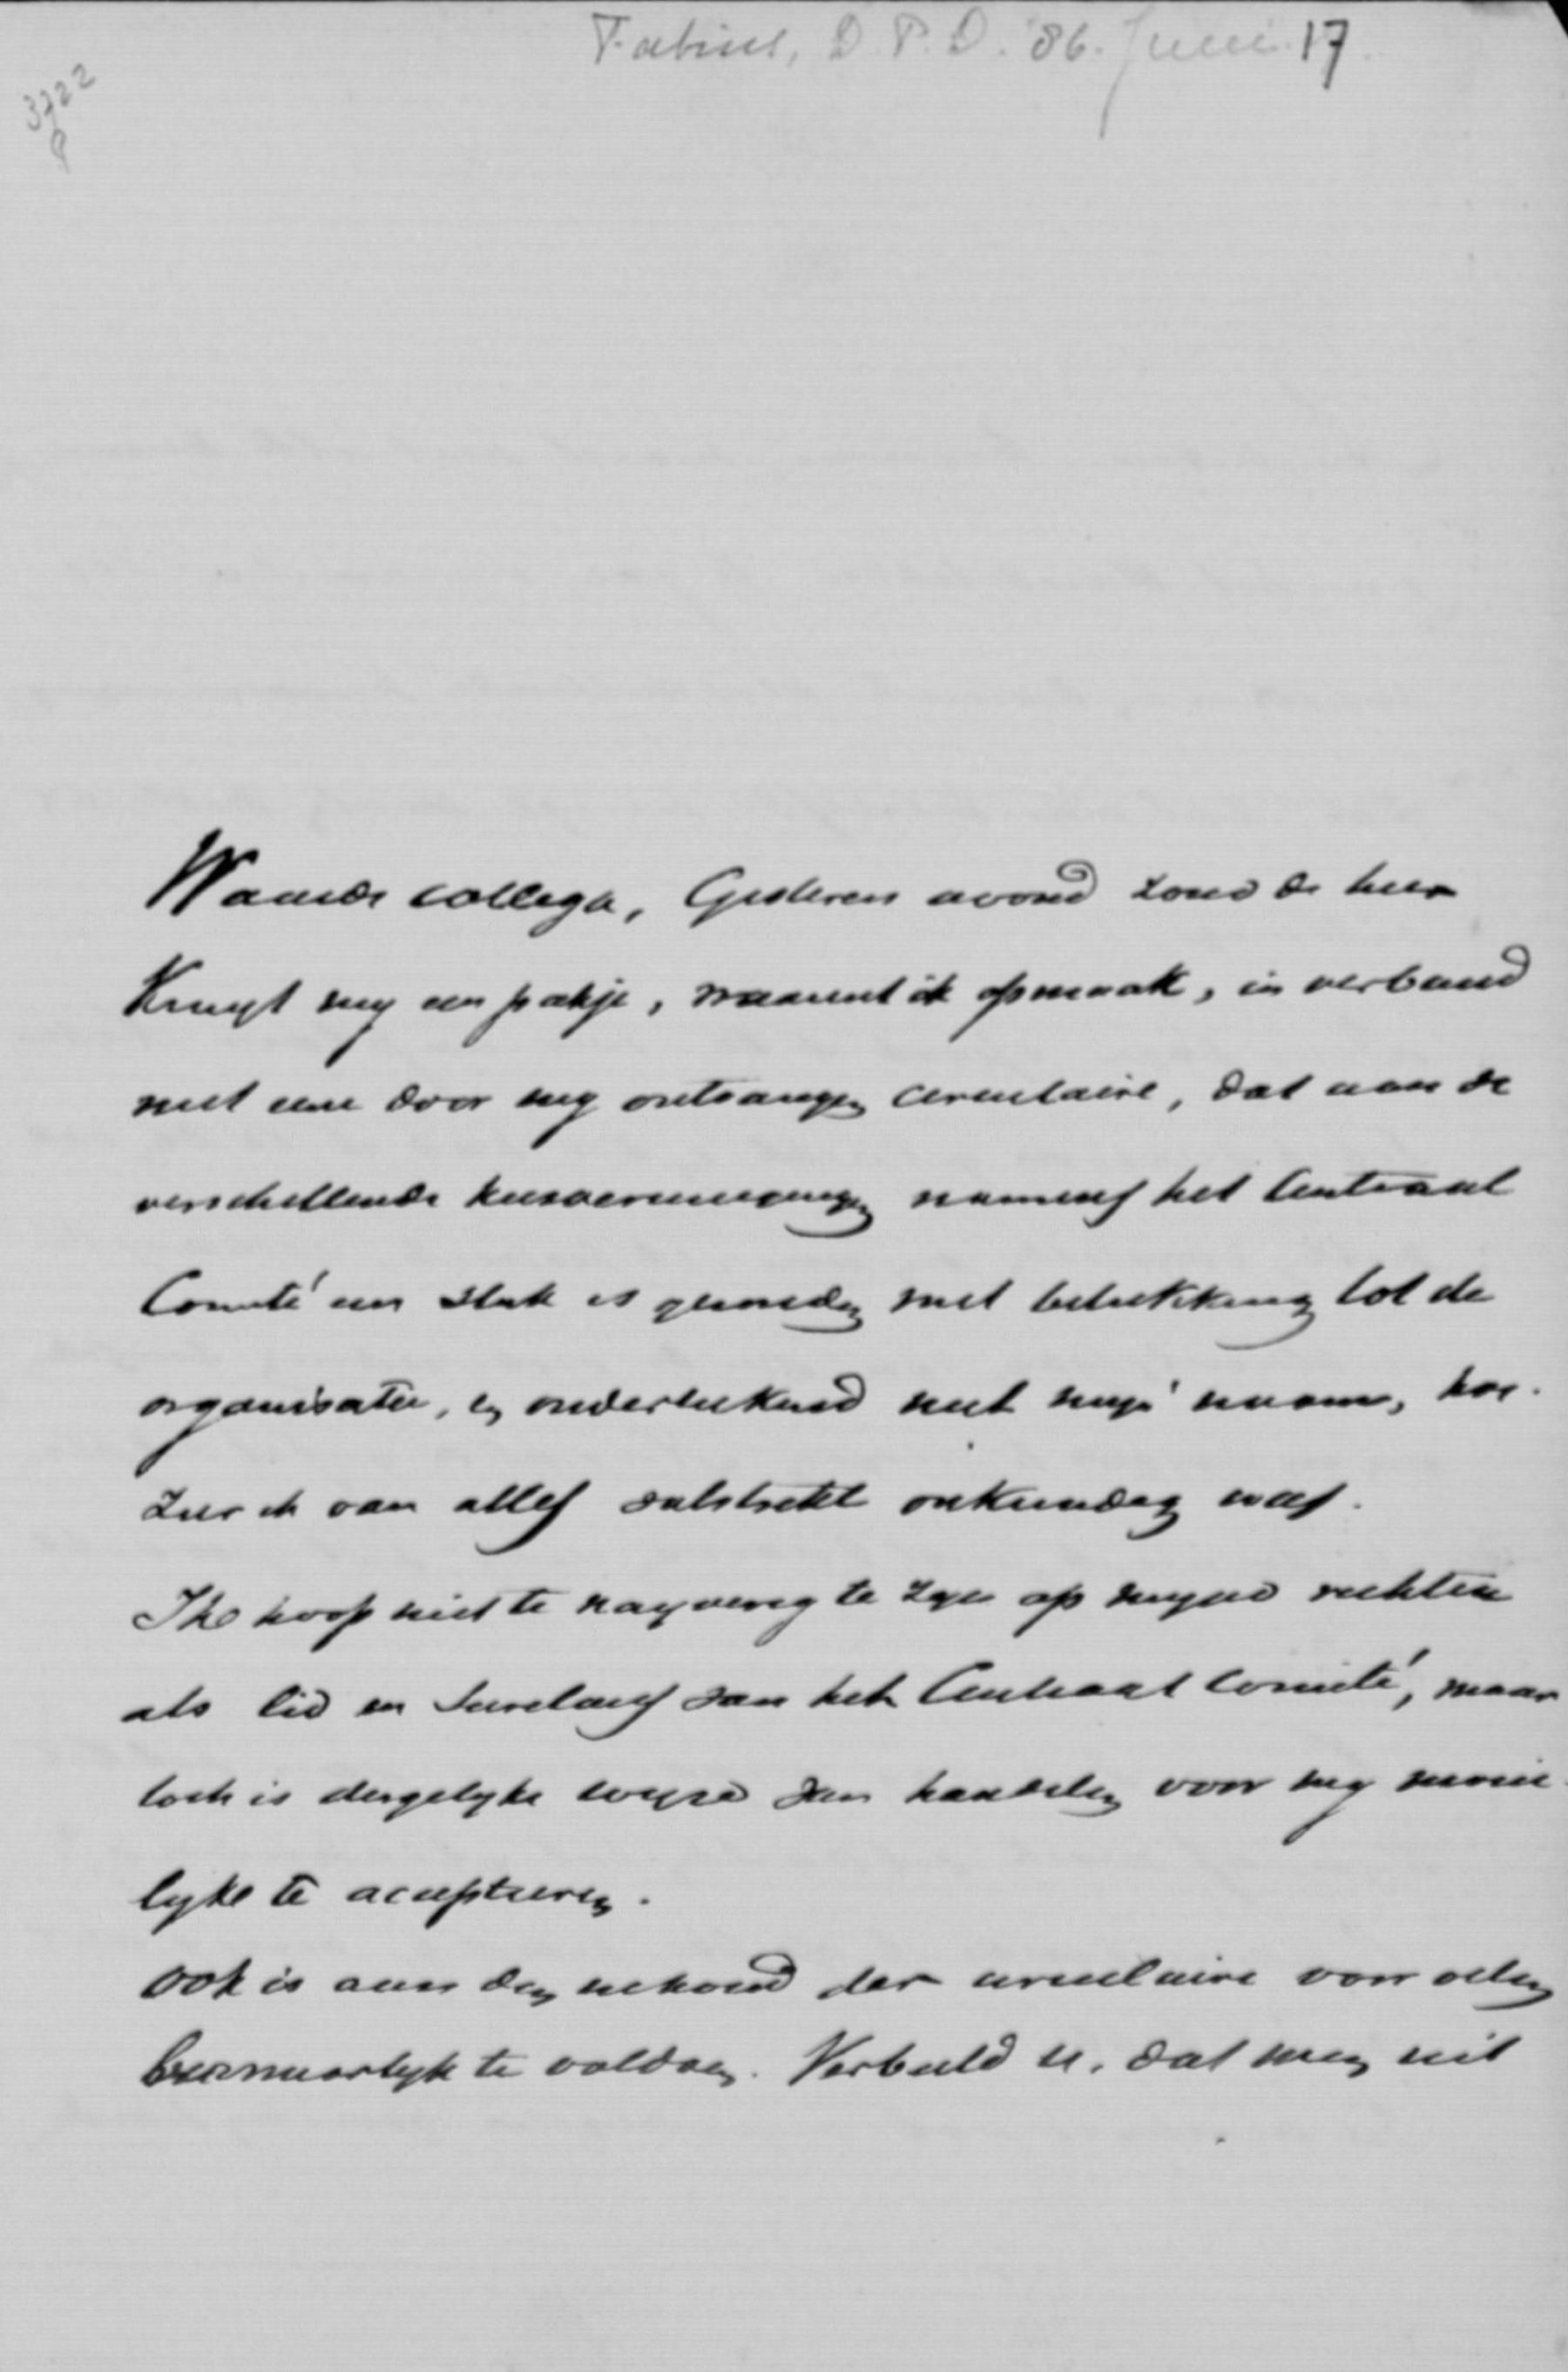 Fabius, D.P.D. '86. Juni 17
3722
Waarde collega, Gisteren avond zond de heer
Kruyt my een pakje, waaruit ik opmaak, in verband
met eene door my ontvangen circulaire, dat aan de
verschillende kiesvereenigingen namens het Centraal
Comité een stuk is gezonden met betrekking tot de
organisatie, en onderteekend met myn naam, hoe-
zeer ik van alles volstrekt onkundig was.
Ik hoop niet te nayverig te zyn op myne rechten
als lid en Secretaris van het Centraal Comité, maar
toch is dergelyke wyze van handelen voor my moeie-
lyk te accepteeren.
Ook is aan den inhoud der circulaire voor velen
bezwaarlyk te voldoen. Verbeeld U, dat men uit